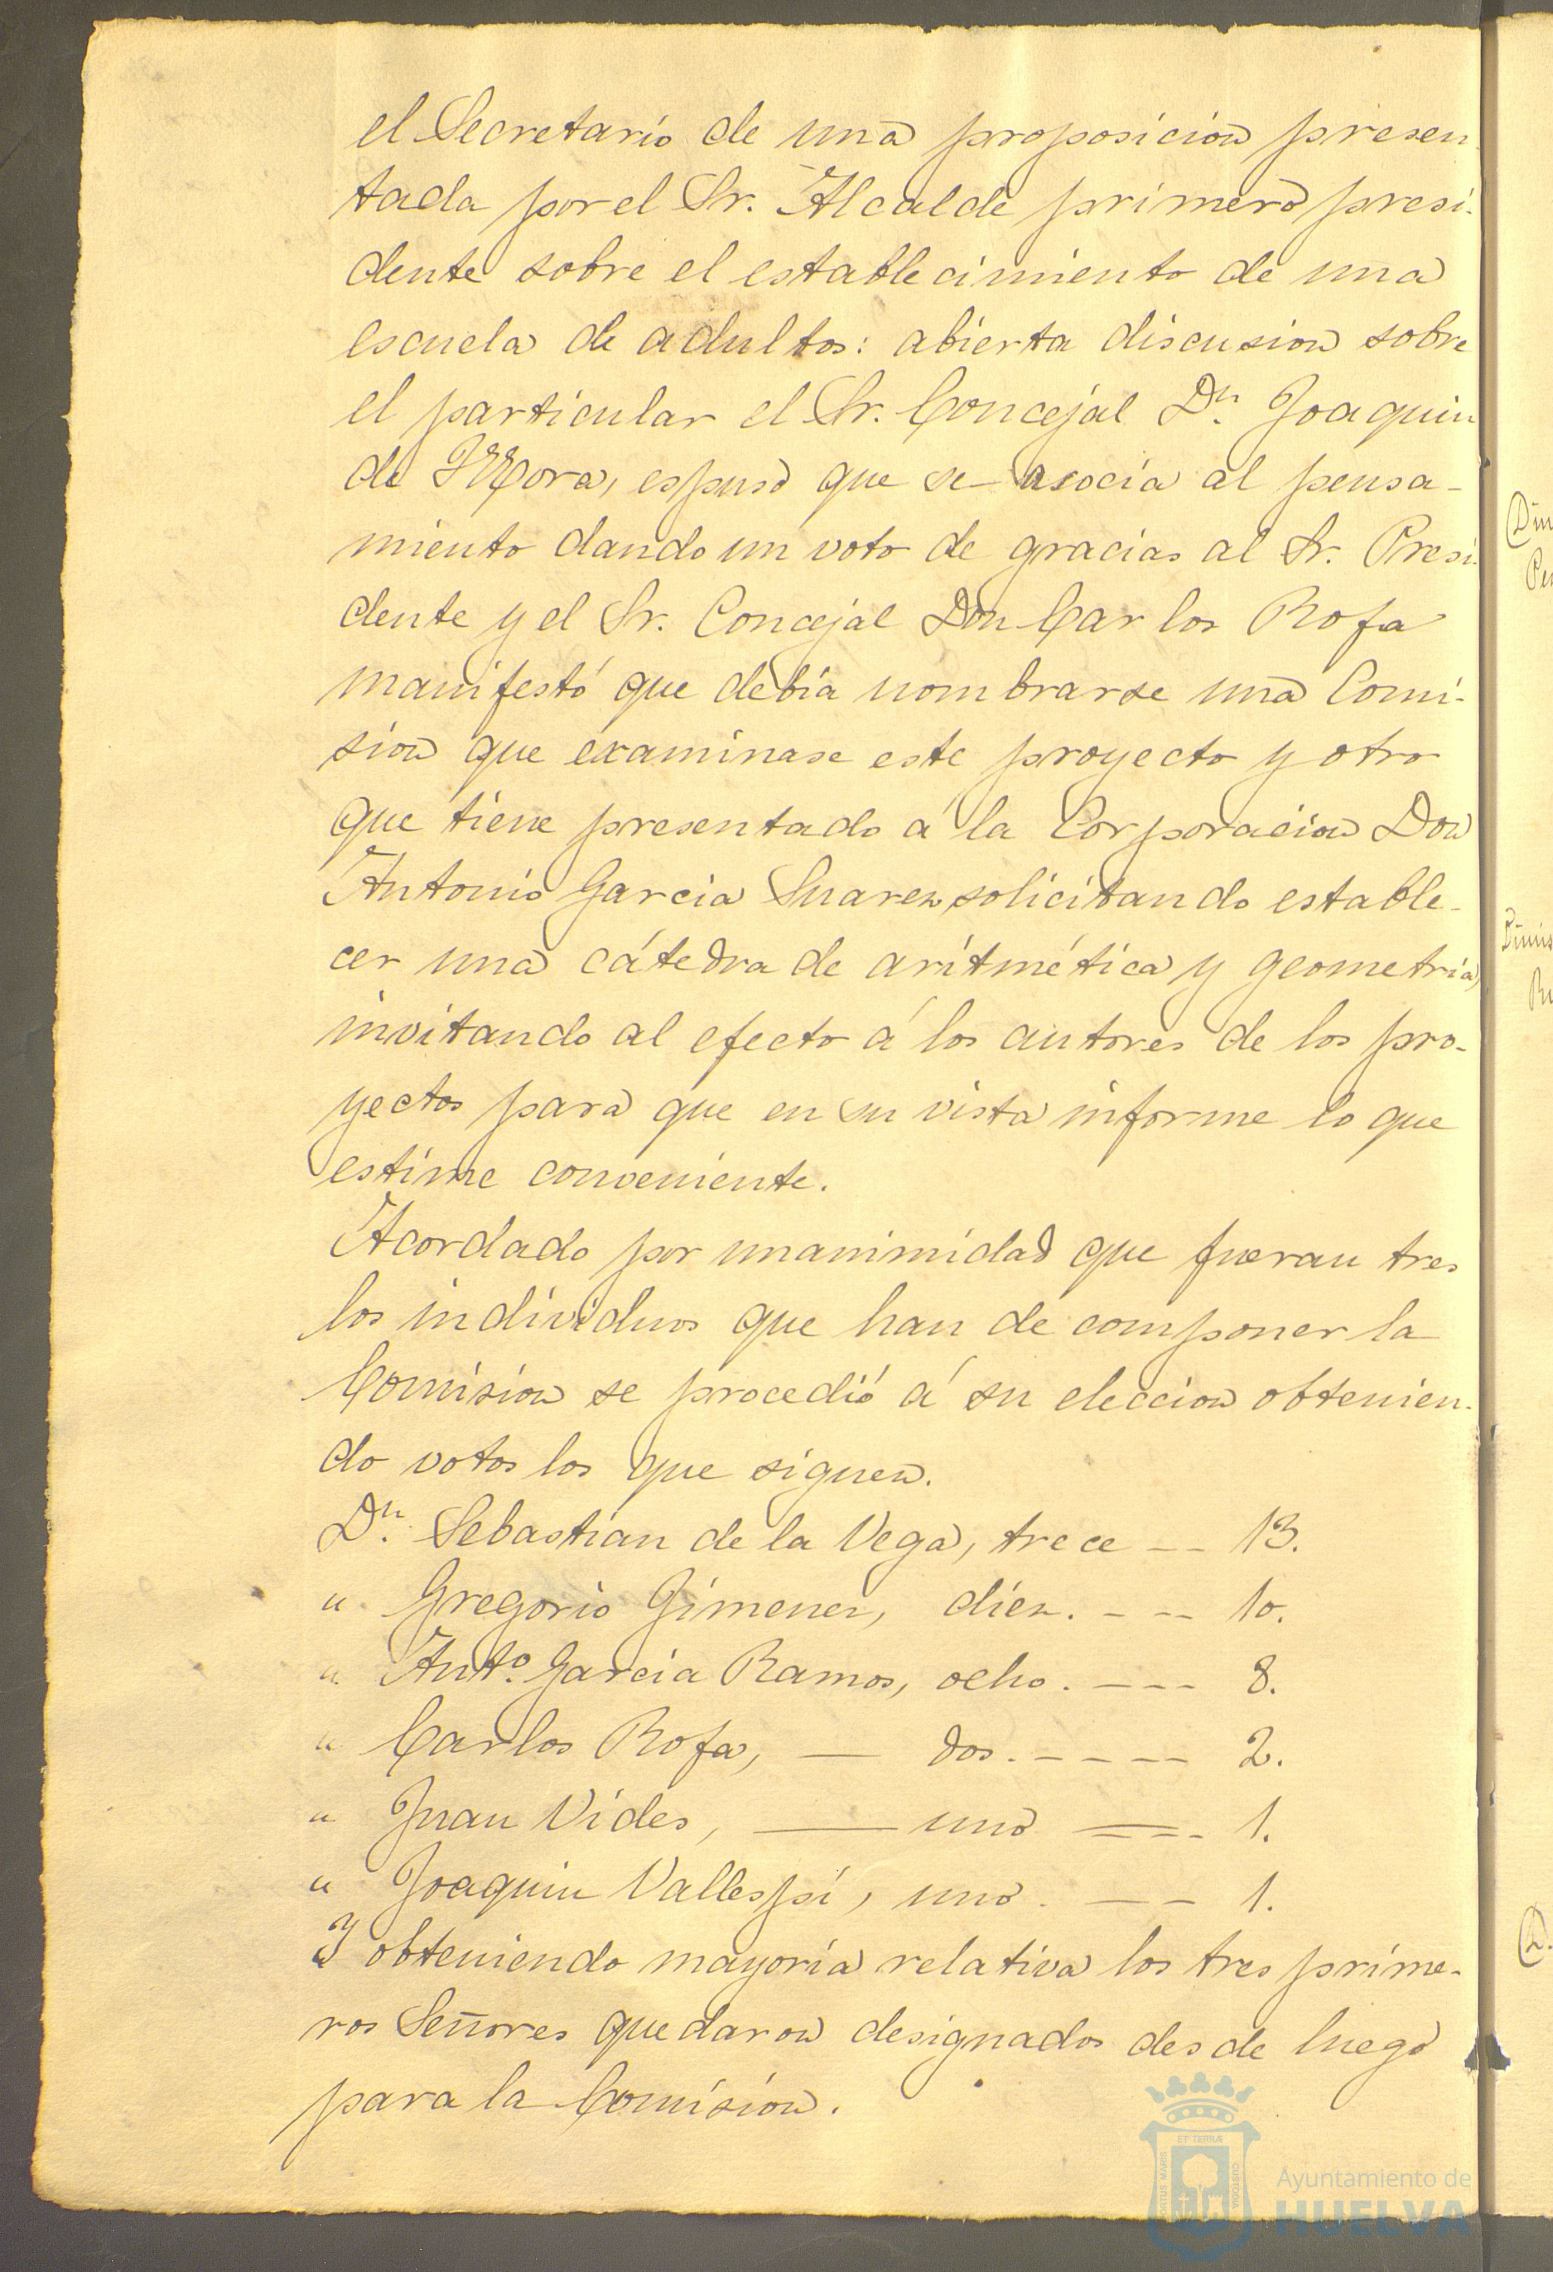 el Secretario de una proposicion presen
tada por el Sr. Alcalde primero presi-
dente sobre el establecimiento de una
escuela de adultos: abierta discusion sobre
el particular el Sr. Concejal Dn. Joaquin
de Mora, espuso que se asocia al pensa-
miento dando un voto de gracias al Sr. Presi-
dente y el Sr. Concejal Don Carlos Rofa
manifestó que debia nombrarse una Comi-
sion que examinase este proyecto y otro
que tiene presentado á la Corporacion Don
Antonio Garcia Suarez solicitando estable-
cer una cátedra de aritmética y geometria,
invitando al efecto á los autores de los pro-
yectos para que en su vista informe lo que
estime conveniente.
Acordado por unanimidad que fueran tres
los individuos que han de componer la
Comision se procedió á su eleccion obtenien-
do votos los que siguen.
Dn. Sebastian de la Vega, trece -- 13.
" Gregorio Gimenez, diez. --- 10.
" Anto. Garcia Ramos, ocho. --- 8.
" Carlos Rofa, — dos. ----- 2.
" Juan Vides, — uno --- 1.
" Joaquin Vallespí, uno. --- 1.
Y obteniendo mayoria relativa los tres prime-
ros Señores quedaron designados desde luego
para la Comision.
Ayuntamiento de
HUELVA